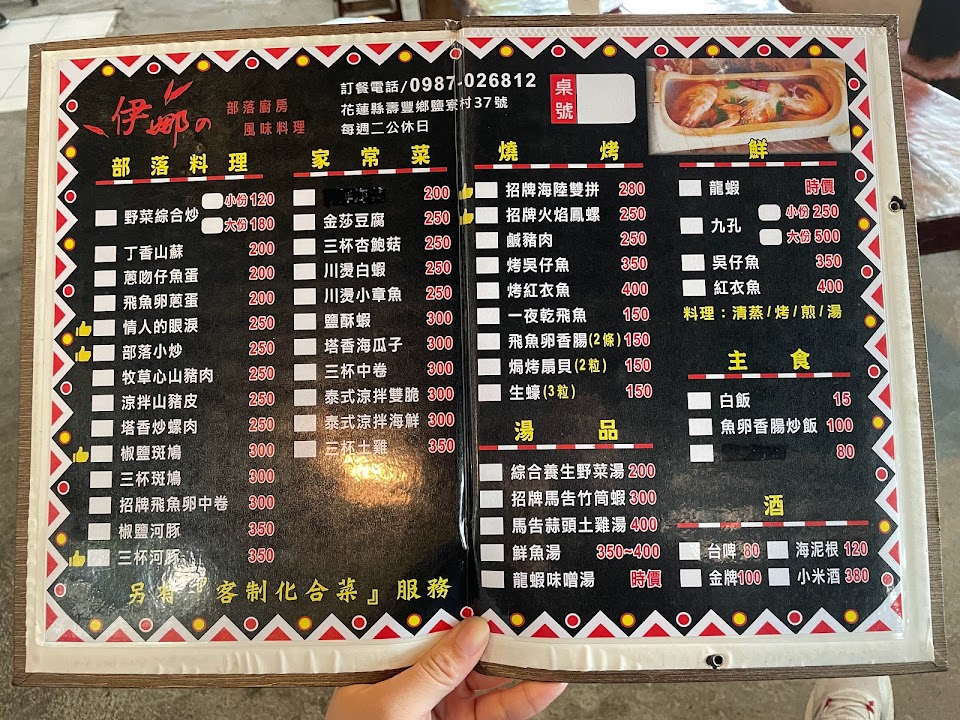 伊娜の
部落廚房
風味料理
訂餐電話/0987-026812
花蓮縣壽豐鄉鹽寮村37號
每週二公休日
桌號
部落料理
野菜綜合炒 小份 120
大份 180
丁香山蘇 200
蔥吻仔魚蛋 200
飛魚卵蔥蛋 200
情人的眼淚 250
部落小炒 250
牧草心山豬肉 250
涼拌山豬皮 250
塔香炒螺肉 250
椒鹽斑鳩 300
三杯斑鳩 300
招牌飛魚卵中卷 300
椒鹽河豚 350
三杯河豚 350
家常菜
200
金莎豆腐 250
三杯杏鮑菇 250
川燙白蝦 250
川燙小章魚 250
鹽酥蝦 300
塔香海瓜子 300
三杯中卷 300
泰式涼拌雙脆 300
泰式涼拌海鮮 300
三杯土雞 350
另有『客制化合菜』服務
燒烤
招牌海陸雙拼 280
招牌火焰鳳螺 250
鹹豬肉 250
烤吳仔魚 350
烤紅衣魚 400
一夜乾飛魚 150
飛魚卵香腸(2條) 150
焗烤扇貝(2粒) 150
生蠔(3粒) 150
湯品
綜合養生野菜湯 200
招牌馬告竹筒蝦 300
馬告蒜頭土雞湯 400
鮮魚湯 350~400
龍蝦味噌湯 時價
鮮
龍蝦 時價
九孔 小份 250
大份 500
吳仔魚 350
紅衣魚 400
料理：清蒸/烤/煎/湯
主食
白飯 15
魚卵香腸炒飯 100
80
酒
台啤 80 海泥根 120
金牌 100 小米酒 380